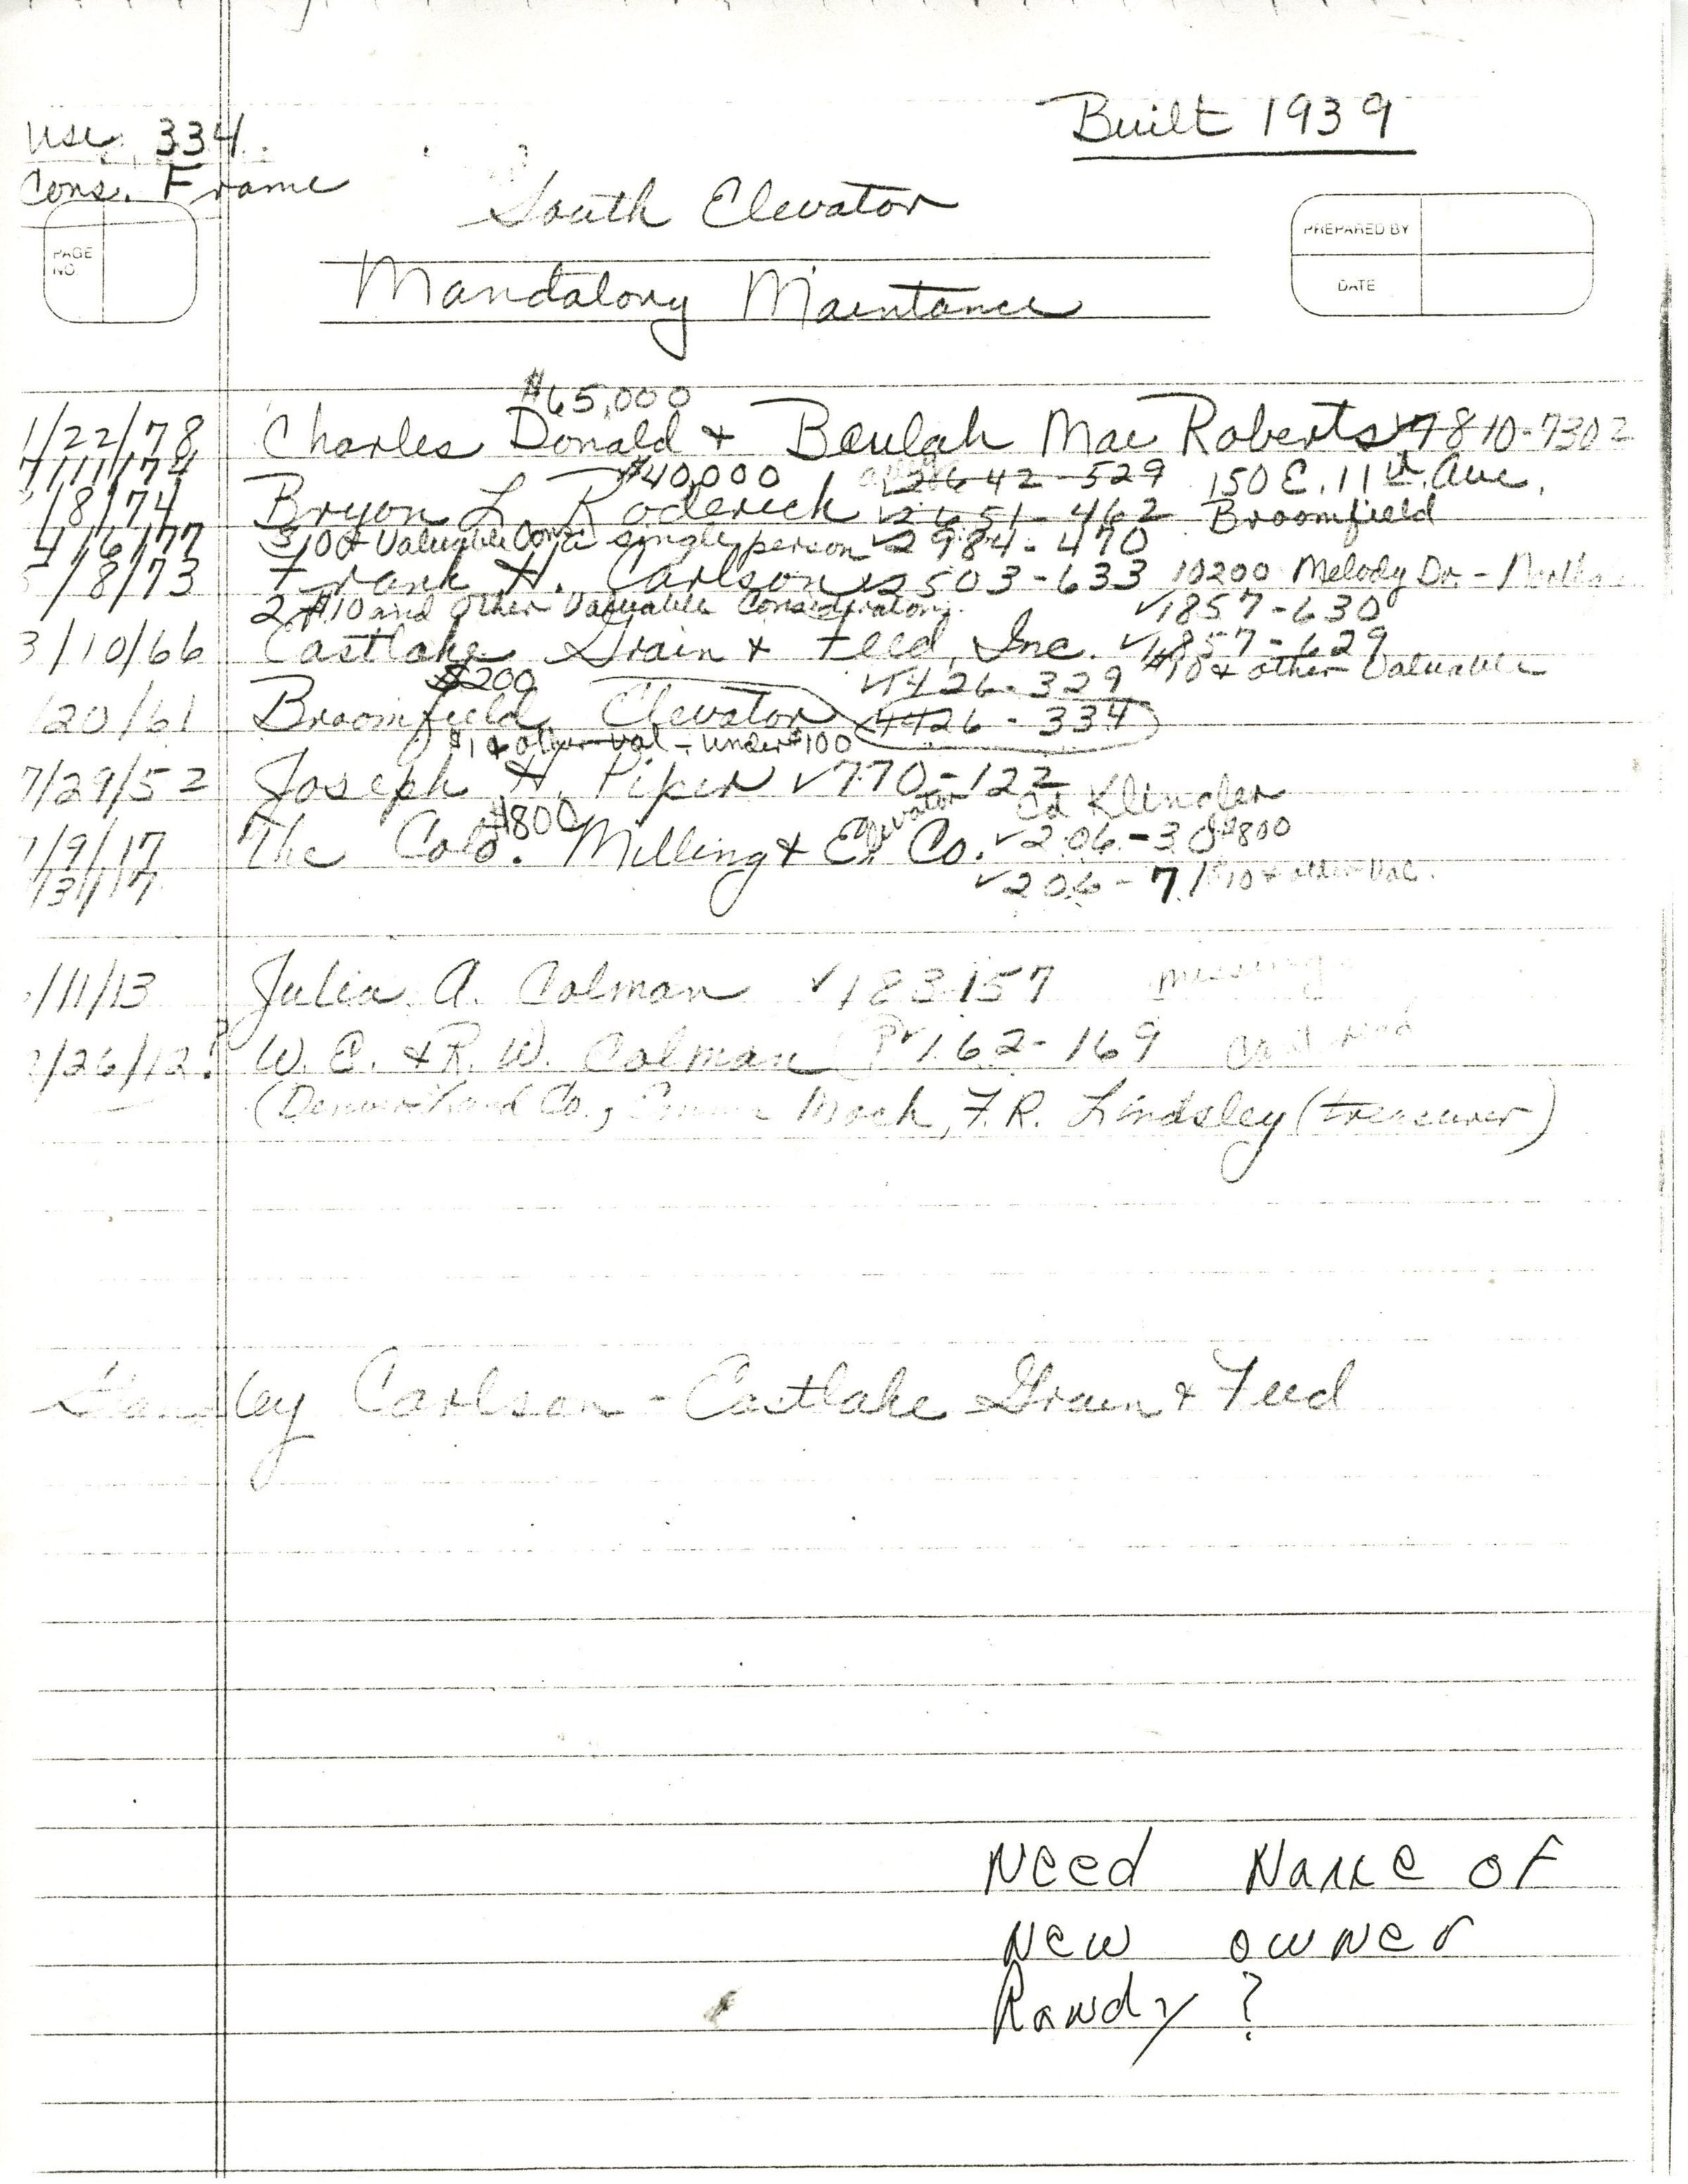 Built 1939
use 334
Cons. Frame
South Elevator
PAGE NO
PREPARED BY
DATE
Mandatory Maintance
$65,000
1/22/78 Charles Donald & Beulah Mae Roberts 810-7302
7/11/74 $40,000 2642-529 150 E. 11th Ave.
/8/74 Bryon L Roderick 2651-462 Broomfield
4/6/77 $10 & Valuable Con a single person 2984-470
/8/73 Frank H. Carlson 2503-633 10200 Melody Dr. -
2 $10 and other Valuable Consideration 1857-630
3/10/66 Eastlake Grain & Feed, Inc. 1857-629
$10 & other Valuable
$200 1426-329
/20/61 Broomfield Elevator 1426-334
$10 & other val - under $100
7/29/52 Joseph H. Piper 770-122
$800 Elevator Ed Klingler
/9/17 The Colo. Milling & El. Co. 206-30 $800
/31/17 206-7 $10 & other Val.
/11/13 Julia A. Colman 183-157 missing
/26/12? W. E. & R. W. Colman 162-169
(Denver Land Co., Emma Mock, F. R. Lindsley (treasurer)
Carlson - Eastlake Grain & Feed
Need Name of
New owner
Randy?